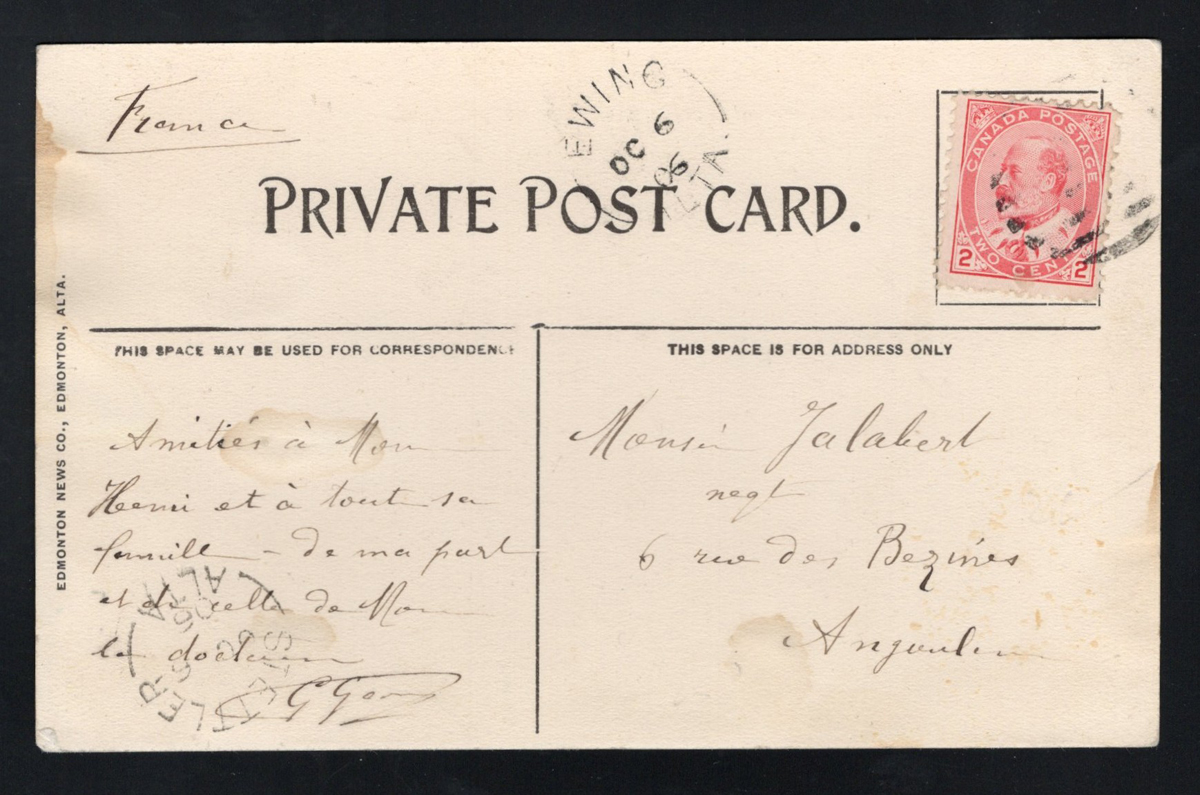 France
EWING
OC 6
06
ALTA.
CANADA POSTAGE
TWO CENTS
2 2
PRIVATE POST CARD.
EDMONTON NEWS CO., EDMONTON, ALTA.
THIS SPACE MAY BE USED FOR CORRESPONDENCE
Amitiés à Mon
Henri et à toute sa
famille - de ma part
et de celle de Mon
le docteur
G
THIS SPACE IS FOR ADDRESS ONLY
Monsieur Jalabert
negt
6 rue des Bezines
Angoulême
STETTLER
ALTA